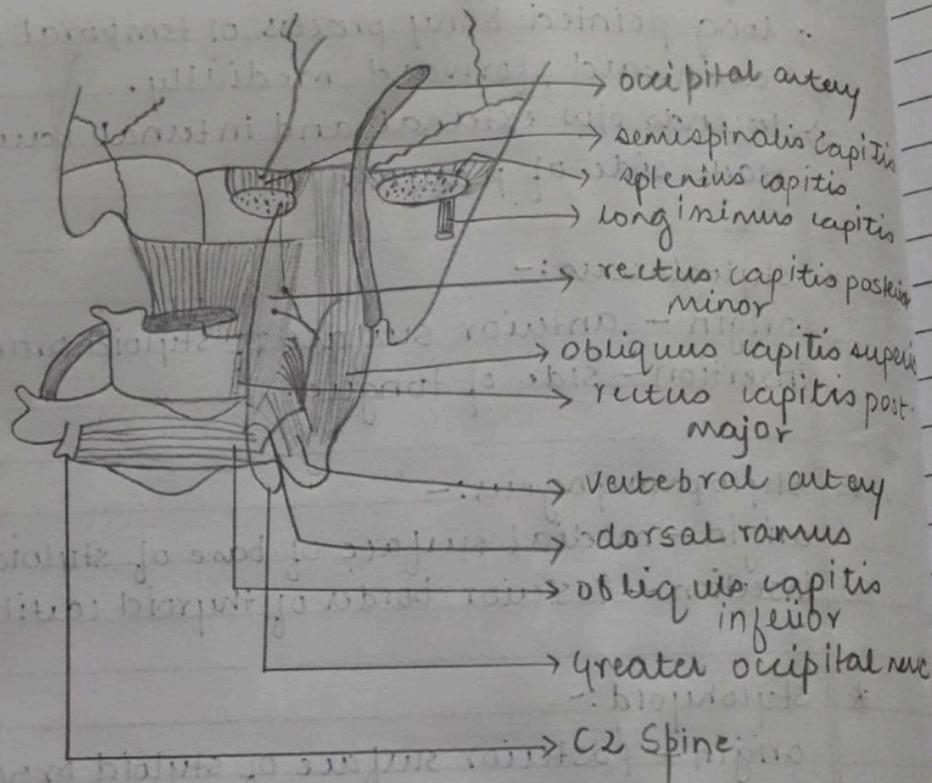 occipital artery
semispinalis capitis
splenius capitis
longissimus capitis
rectus capitis posterior
minor
obliquus capitis superior
rectus capitis post.
major
vertebral artery
dorsal ramus
obliquis capitis
inferior
Greater occipital nerve
C2 Spine